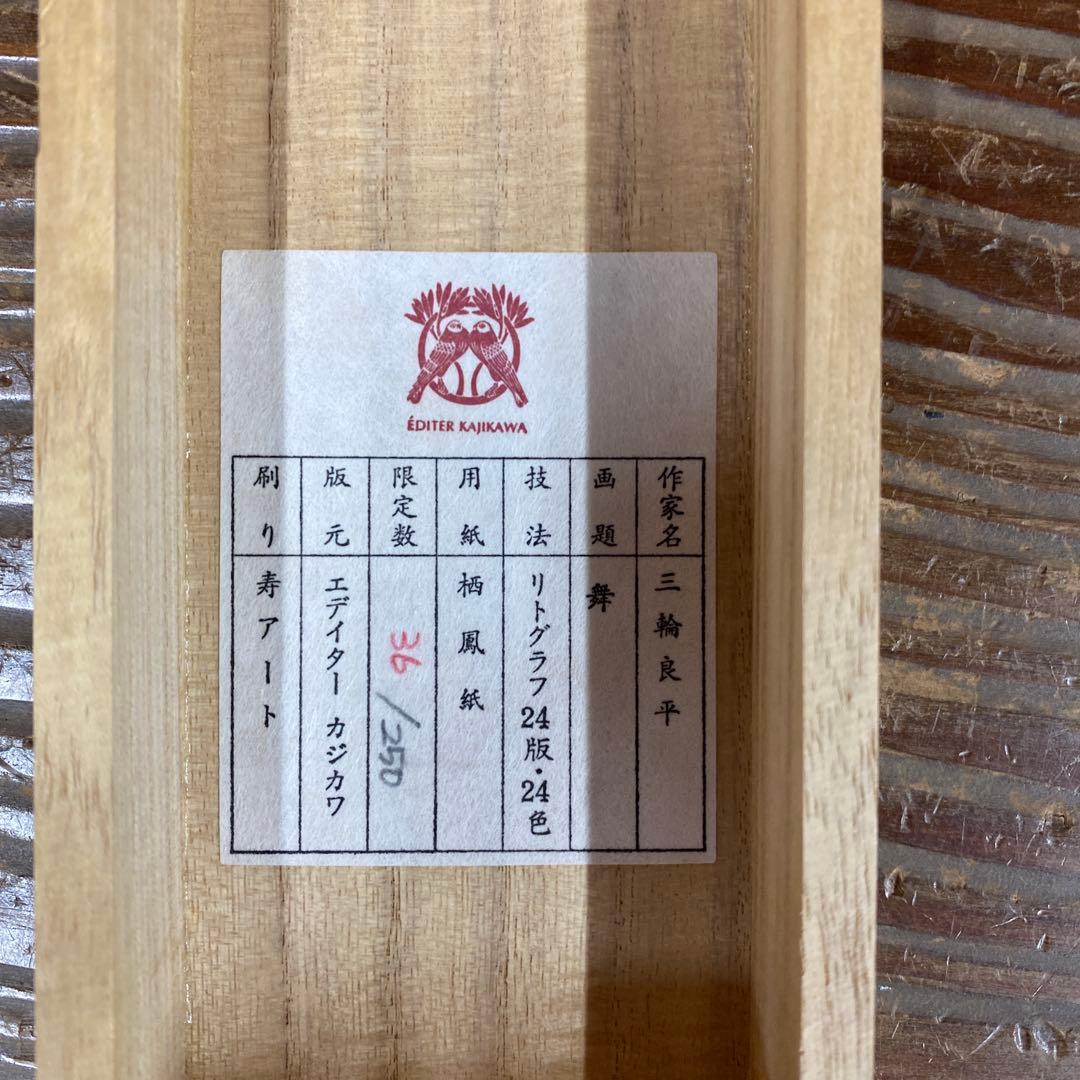 ÉDITER KAJIKAWA
作家名 三輪良平
画題 舞
技法 リトグラフ24版・24色
用紙 栖鳳紙
限定数 36/250
版元 エデイター カジカワ
刷り 寿アート